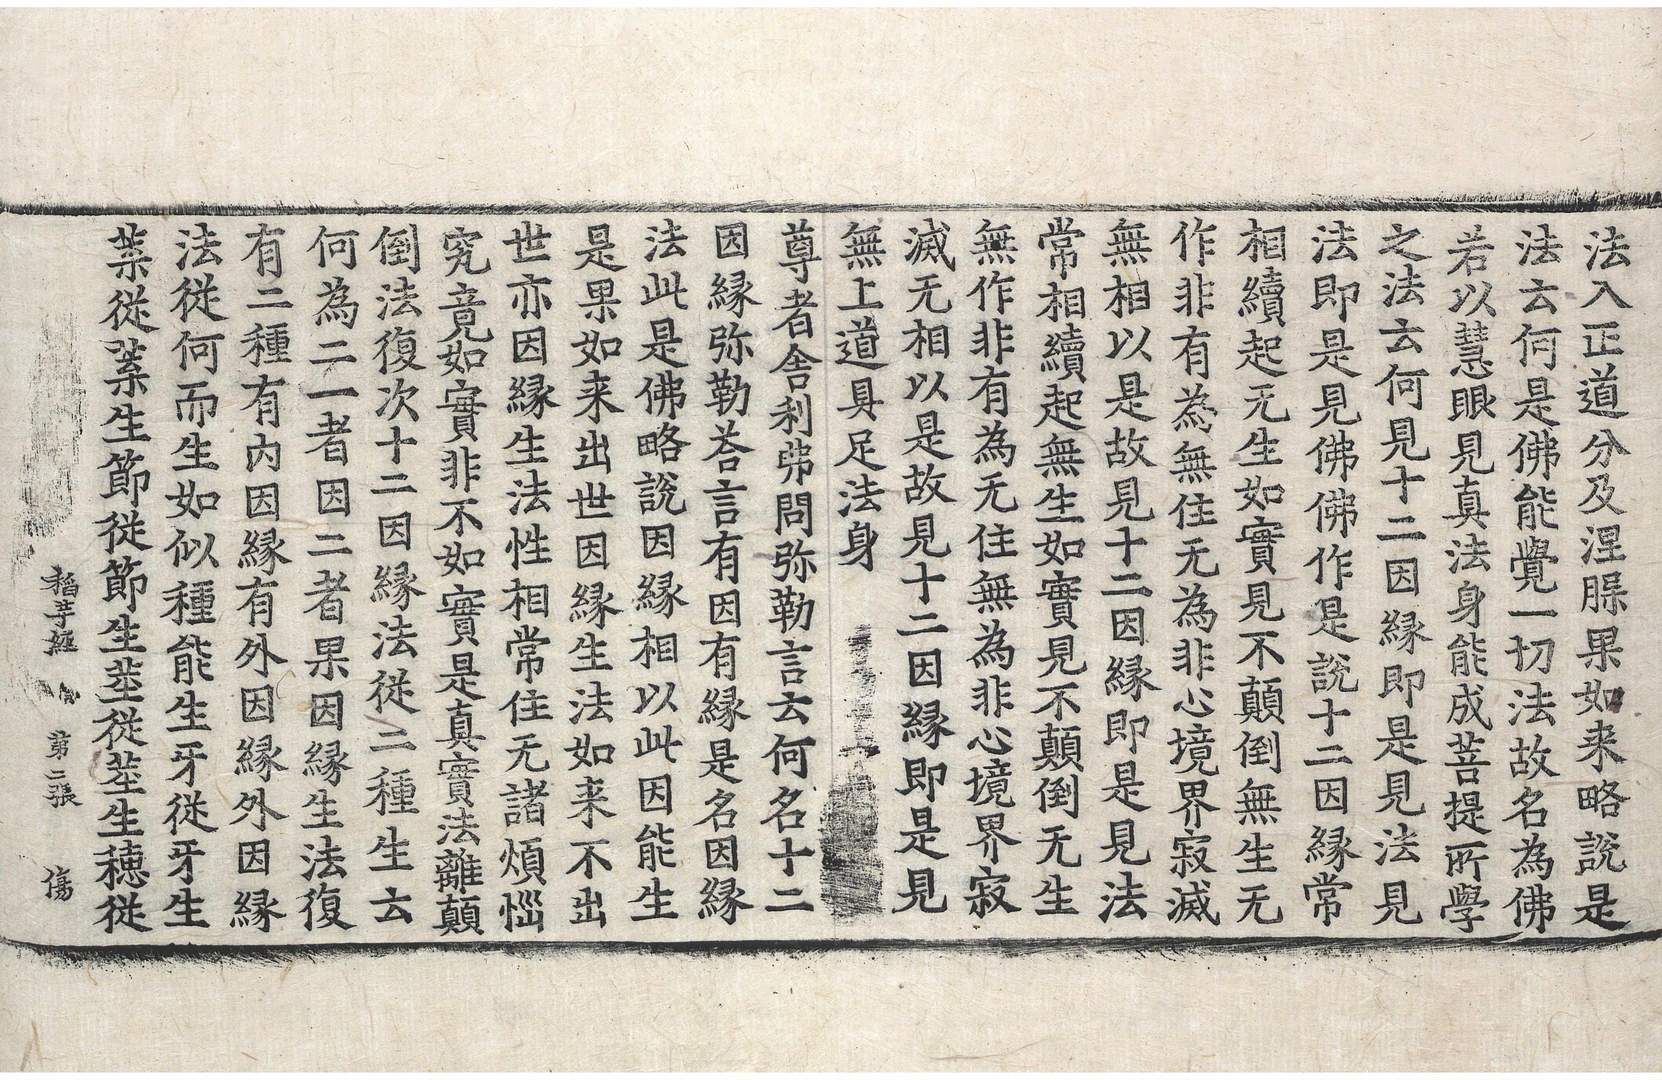 法入正道分及涅𣵀果如来略說是
法云何是佛能覺一切法故名為佛
若以慧眼見真法身能成菩提所學
之法云何見十二因縁即是見法見
法即是見佛佛作是說十二因縁常
相續起无生如實見不顛倒無生无
作非有為無住无為非心境界寂滅
無相以是故見十二因縁即是見法
常相續起無生如實見不顛倒无生
無作非有為无住無為非心境界寂
滅无相以是故見十二因縁即是見
無上道具足法身
尊者舍利弗問弥勒言云何名十二
因縁弥勒荅言有因有縁是名因縁
法此是佛略說因縁相以此因能生
是果如来出世因縁生法如来不出
世亦因縁生法性相常住无諸煩惱
究竟如實非不如實是真實法離顛
倒法復次十二因縁法従二種生云
何為二一者因二者果因縁生法復
有二種有内因縁有外因縁外因縁
法従何而生如似種能生牙従牙生
葉従葉生節従節生莖従莖生穗従
稻芉經 第二張 傷